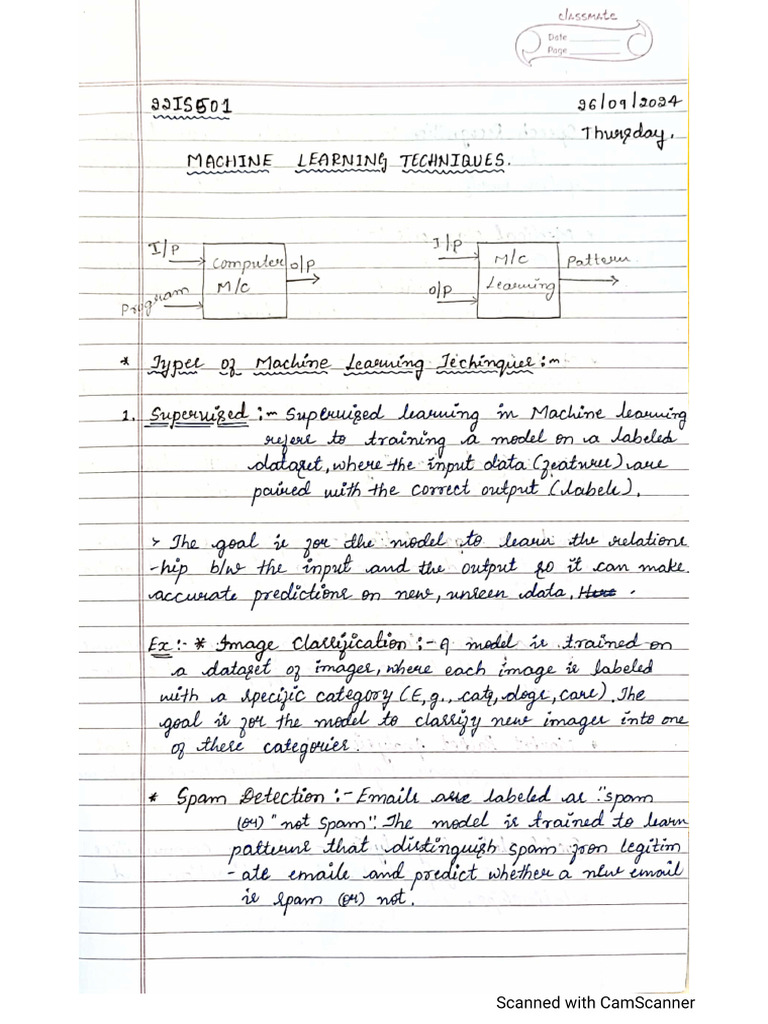 classmate
Date
Page
22IS501
26/09/2024
Thursday.
MACHINE LEARNING TECHNIQUES.
I/P
Computer
O/P
M/C
Program
I/P
M/C
Pattern
O/P
Learning
* Types of Machine Learning Techinques :-
1. Supervised :- Supervised learning in Machine learning
refers to training a model on a labeled
dataset, where the input data (features) are
paired with the correct output (labels).
> The goal is for the model to learn the relations
-hip b/w the input and the output so it can make
accurate predictions on new, unseen data, Here .
Ex :- * Image Classification :- A model is trained on
a dataset of images, where each image is labeled
with a specific category (E,g., cats, dogs, cars). The
goal is for the model to classify new images into one
of these categories.
* Spam Detection :- Emails are labeled as "spam
(or) "not spam". The model is trained to learn
patterns that distinguish spam fron legitim
-ate emails and predict whether a new email
is spam (or) not.
Scanned with CamScanner